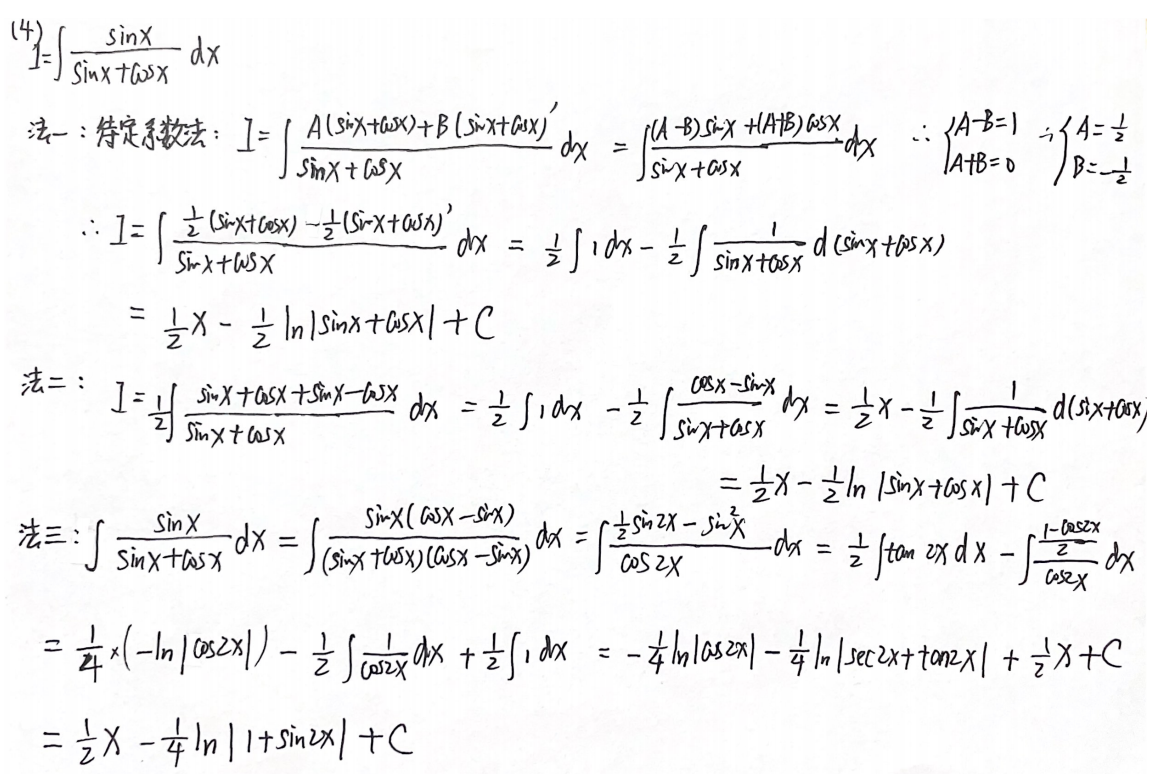 (4) I=∫ sinx/(sinx+cosx) dx
法一：待定系数法： I=∫ [A(sinx+cosx)+B(sinx+cosx)']/(sinx+cosx) dx = ∫ [(A-B)sinx+(A+B)cosx]/(sinx+cosx) dx ∴ {A-B=1 A+B=0 ∴ {A=1/2 B=-1/2
∴ I=∫ [1/2(sinx+cosx)-1/2(sinx+cosx)']/(sinx+cosx) dx = 1/2∫1dx - 1/2∫ 1/(sinx+cosx) d(sinx+cosx)
= 1/2 x - 1/2 ln|sinx+cosx|+C
法二： I=1/2∫ (sinx+cosx+sinx-cosx)/(sinx+cosx) dx = 1/2∫1dx - 1/2∫ (cosx-sinx)/(sinx+cosx) dx = 1/2 x - 1/2∫ 1/(sinx+cosx) d(sinx+cosx)
= 1/2 x - 1/2 ln|sinx+cosx|+C
法三：∫ sinx/(sinx+cosx) dx = ∫ sinx(cosx-sinx)/((sinx+cosx)(cosx-sinx)) dx = ∫ (1/2 sin2x - sin²x)/cos2x dx = 1/2∫tan2xdx - ∫ ((1-cos2x)/2)/cos2x dx
= 1/4×(-ln|cos2x|) - 1/2∫ 1/cos2x dx + 1/2∫1dx = -1/4 ln|cos2x| - 1/4 ln|sec2x+tan2x| + 1/2 x+C
= 1/2 x - 1/4 ln|1+sin2x|+C